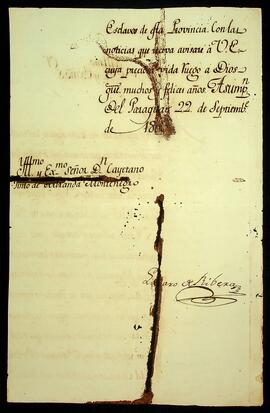 Esclavos de esta Provincia. Con las
noticias que reciva avisaré à V.E.
cuya preciosa vida ruego a Dios
gue. muchos y felices años. Asumpn.
Del Paraguay 22 de Septiembe.
de
Illmo. y Exmo. Señor Dn. Cayetano
Pimo de Miranda Montenegro
Lazaro de Ribera